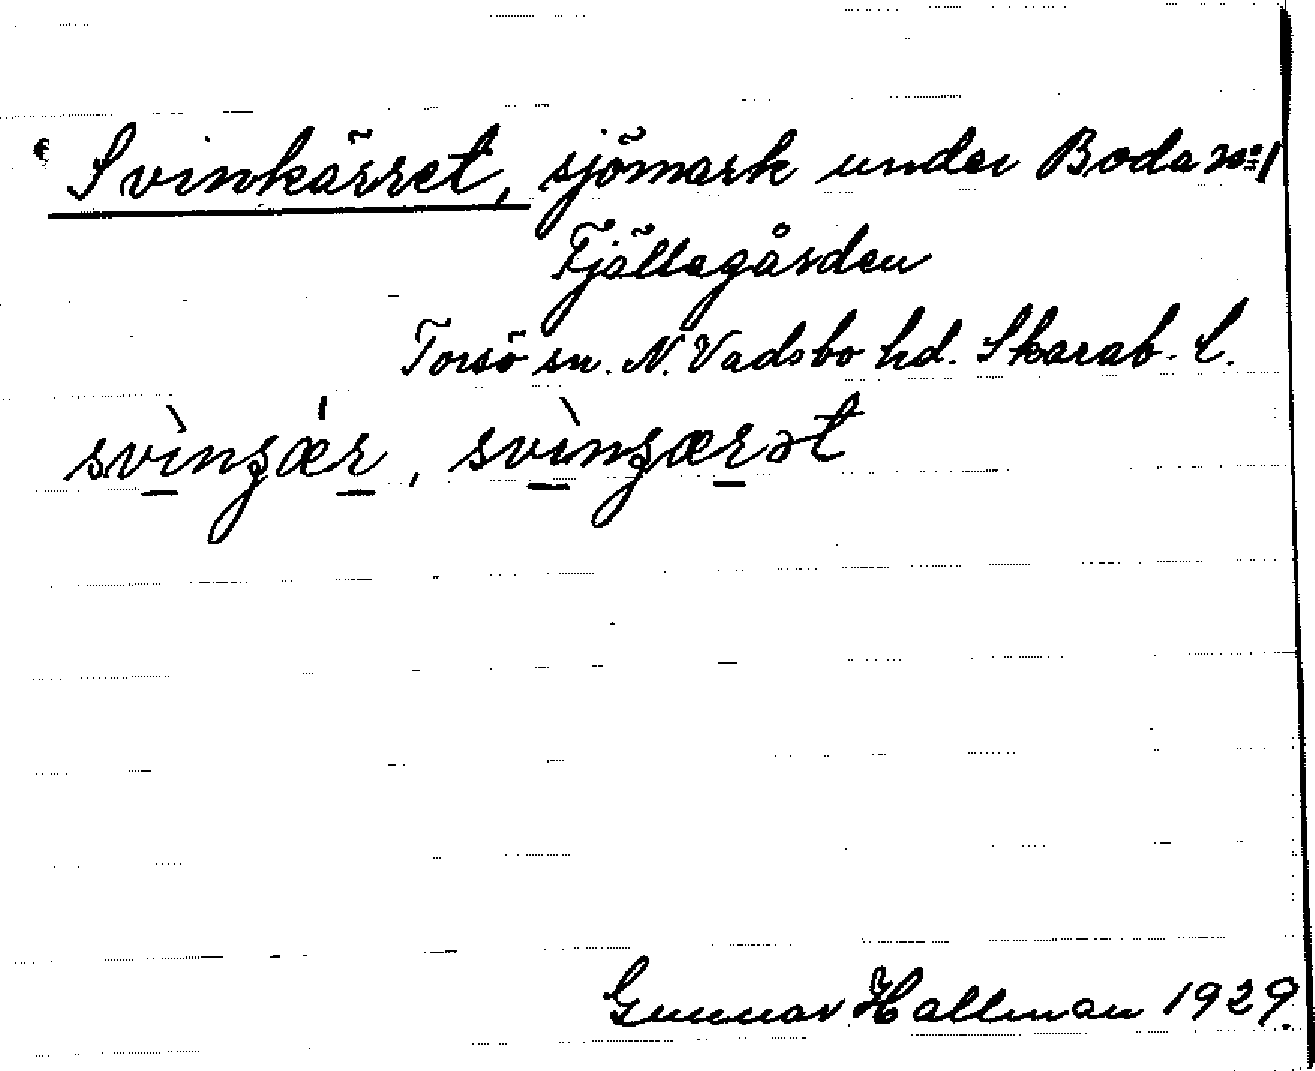 Svinkärret, sjömark under Boda No 1
Fjällagården
Torsö sn. N. Vadsbo hd. Skarab. l.
svìnʒær, svìnʒærət
Gunnar Hallman 1929